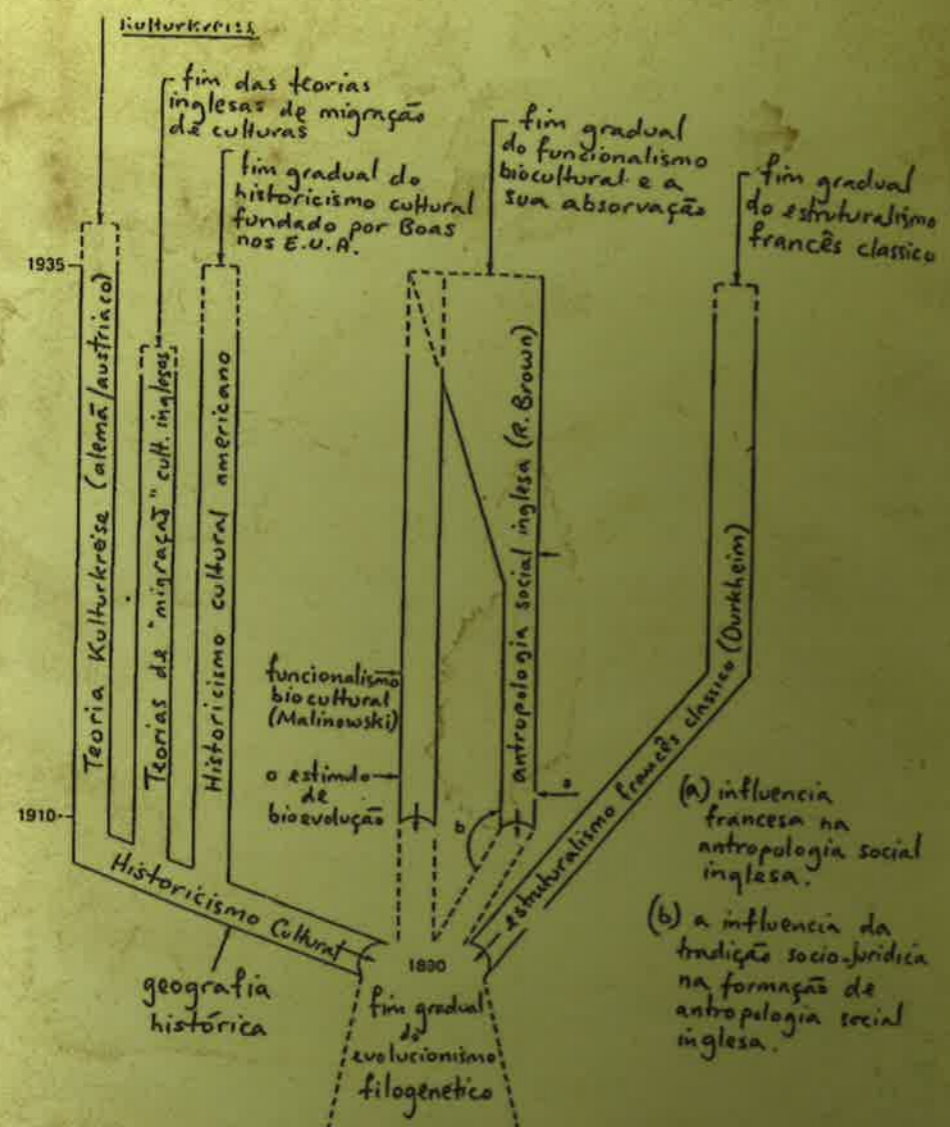 Kulturkreis
fim das teorias
inglesas de migração
de culturas
fim gradual do
historicismo cultural
fundado por Boas
nos E.U.A.
fim gradual
do funcionalismo
biocultural e a
sua absorvação
fim gradual
do estruturalismo
francês classico
1935
Teoria Kulturkreise (alemã/austriaco)
Teorias de "migraçaõ" cult. inglesas
Historicismo cultural americano
funcionalismo
biocultural
(Malinowski)
o estimulo
de
bioevolução
antropologia social inglesa (R. Brown)
estruturalismo francês classico (Durkheim)
a
b
1910
Historicismo Cultural
geografia
histórica
1890
fim gradual
do
evolucionismo
filogenetico
(a) influencia
francesa na
antropologia social
inglesa.
(b) a influencia da
tradição socio-juridica
na formação de
antropologia social
inglesa.